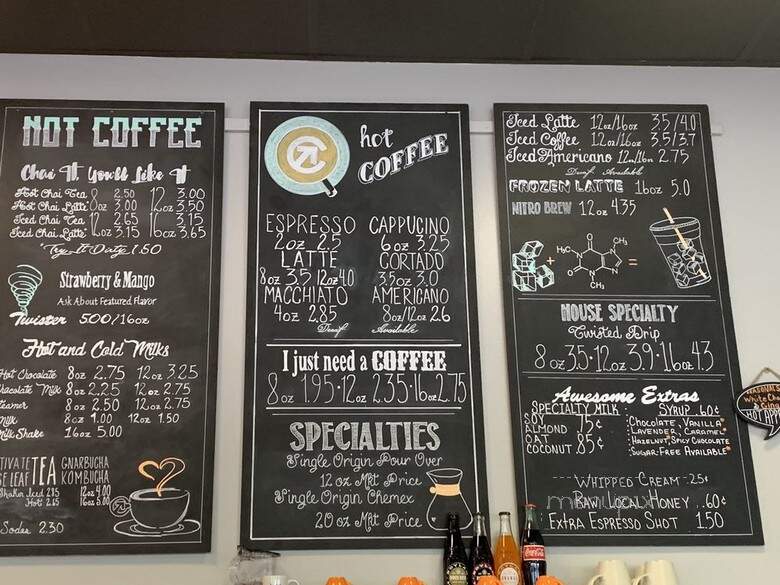 NOT COFFEE
Chai It You'll Like It
Hot Chai Tea 8oz 2.50 12oz 3.00
Hot Chai Latte 8oz 3.00 12oz 3.50
Iced Chai Tea 12oz 2.65 16oz 3.15
Iced Chai Latte 12oz 3.15 16oz 3.65
"Try It Dirty 1.50
Strawberry & Mango
Ask About Featured Flavor
Twister 500/16oz
Hot and Cold Milks
Hot Chocolate 8oz 2.75 12oz 3.25
Milk 8oz 2.25 12oz 2.75
8oz 2.50 12oz 2.75
8oz 1.00 12oz 1.50
Milk Shake 16oz 5.00
TEA GNARBUCHA
LEAF KOMBUCHA
Iced 2.15 12oz 4.00
Hot 2.15 16oz 5.00
Sodas 2.30
hot
COFFEE
ESPRESSO CAPPUCINO
2oz 2.5 6oz 3.25
LATTE CORTADO
8oz 3.5 12oz 4.0 3.5oz 3.0
MACCHIATO AMERICANO
4oz 2.85 8oz/12oz 2.6
Decaf Available
I just need a COFFEE
8oz 1.95·12oz 2.35·16oz 2.75
SPECIALTIES
Single Origin Pour Over
12 oz Mkt Price
Single Origin Chemex
20 oz Mkt Price
Iced Latte 12oz/16oz 3.5/4.0
Iced Coffee 12oz/16oz 3.5/3.7
Iced Americano 12oz/16oz 2.75
Decaf Available
FROZEN LATTE 16oz 5.0
NITRO BREW 12oz 4.35
+ H₃C O CH₃ N N O N N CH₃ =
HOUSE SPECIALTY
Twisted Drip
8oz 3.5·12oz 3.9·16oz 4.3
Awesome Extras
SPECIALTY MILK SYRUP 60¢
SOY 75¢ CHOCOLATE, VANILLA
ALMOND LAVENDER, CARAMEL
OAT 85¢ HAZELNUT, SPICY CHOCOLATE
COCONUT SUGAR-FREE AVAILABLE
WHIPPED CREAM ·· 25¢
RAW LOCAL HONEY ..60¢
EXTRA ESPRESSO SHOT 1.50
SEASONAL
White Cho
Coca-Cola